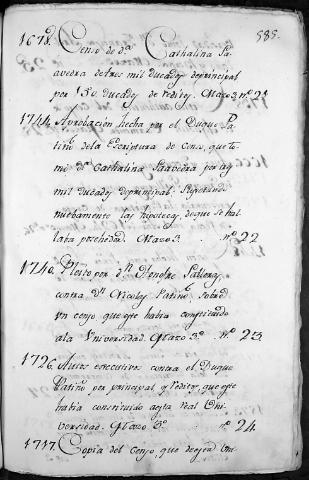 585.
1678. Censo de dª Cathalina Sa-
avedra de tres mil ducados de principal
por 150 ducados de reditos. Mazo 3. nº 21
1744. Aprobacion hecha por el Duque Pa-
tiño de la escriptura de Censo, que to-
mó dª Cathalina Saavedra por
mil ducados de principal
nuebamente las hipotecas, de que se ha-
llaba posehedor. Mazo 3. nº 22
1740. Pleito por dⁿ
contra dⁿ Nicolas Patiño, sobre
un censo que este habia constituido
a la Universidad. Mazo 3º nº 23
1726. Autos executivos contra el Duque
Patiño por principal y reditos, que este
habia constituido a esta Real Uni-
versidad. Mazo 3º nº 24
1717. Copia del Censo, que